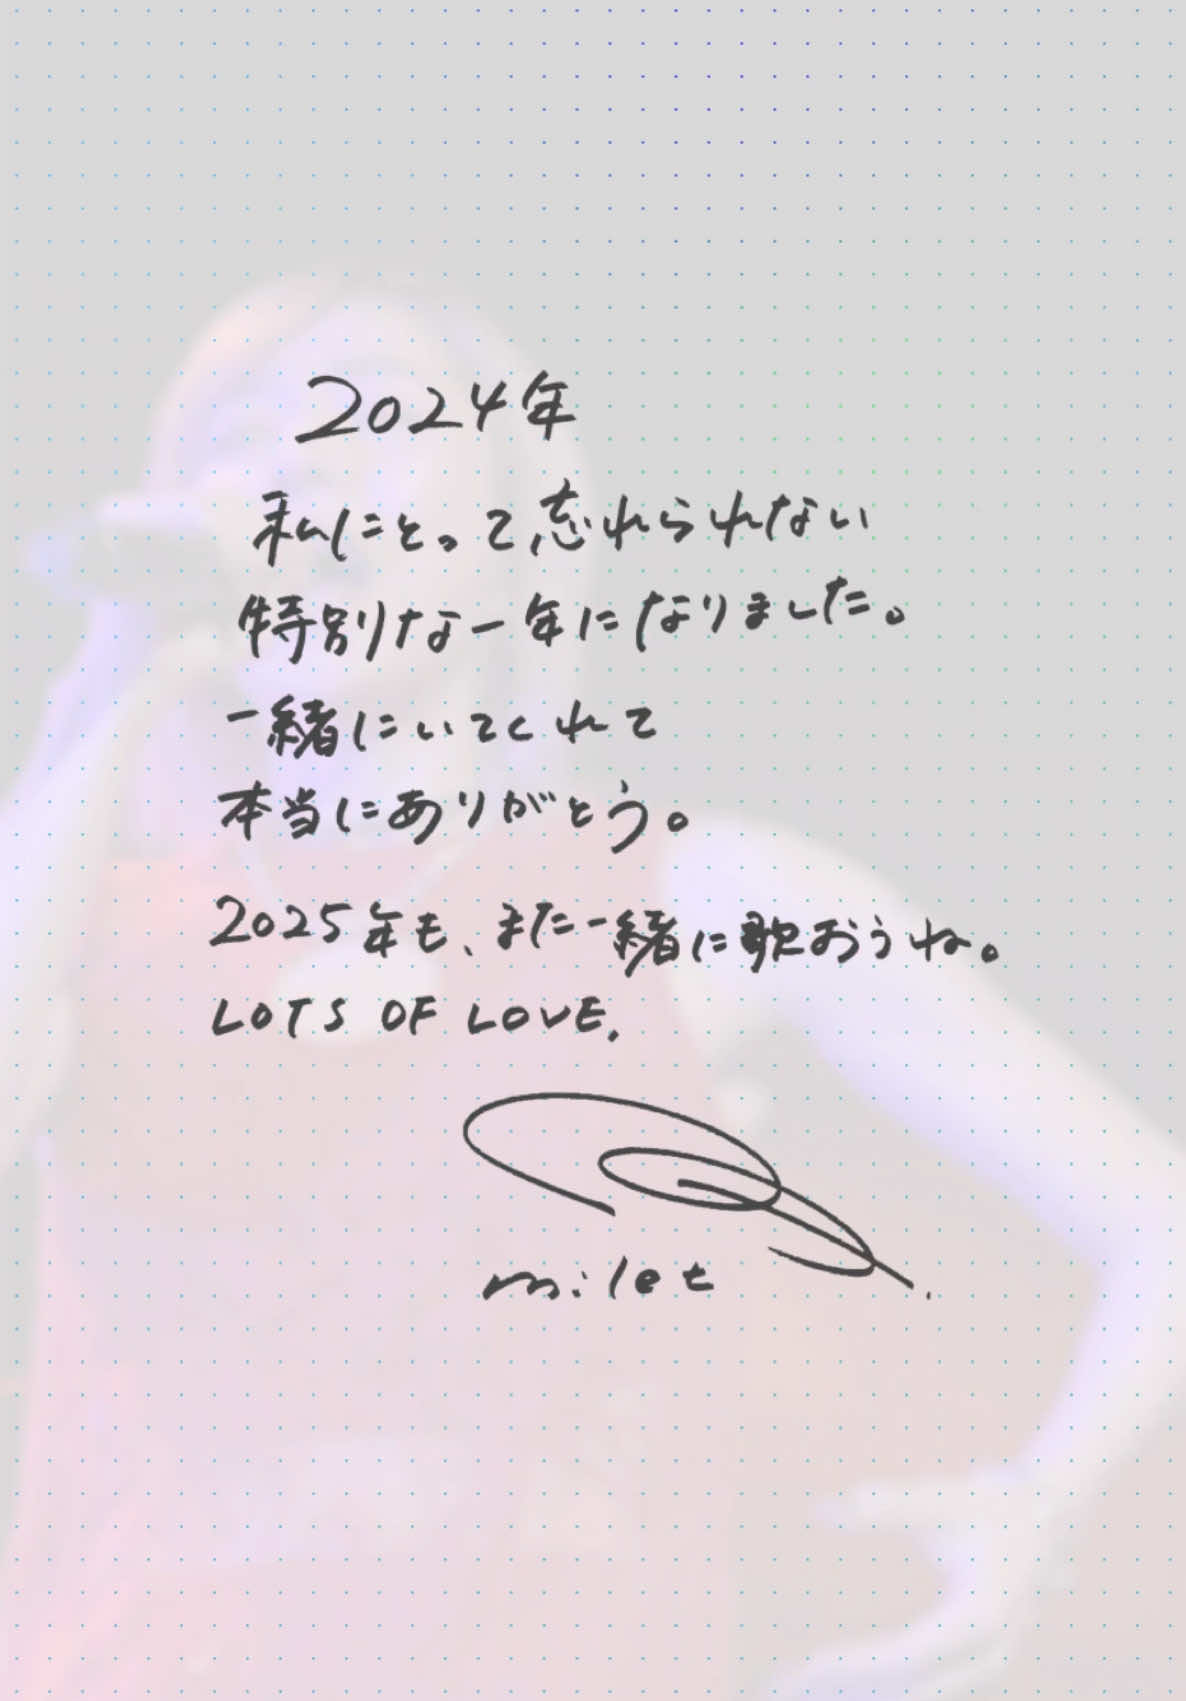 2024年
私にとって忘れられない
特別な一年になりました。
一緒にいてくれて
本当にありがとう。
2025年も、また一緒に歌おうね。
LOTS OF LOVE.
milet